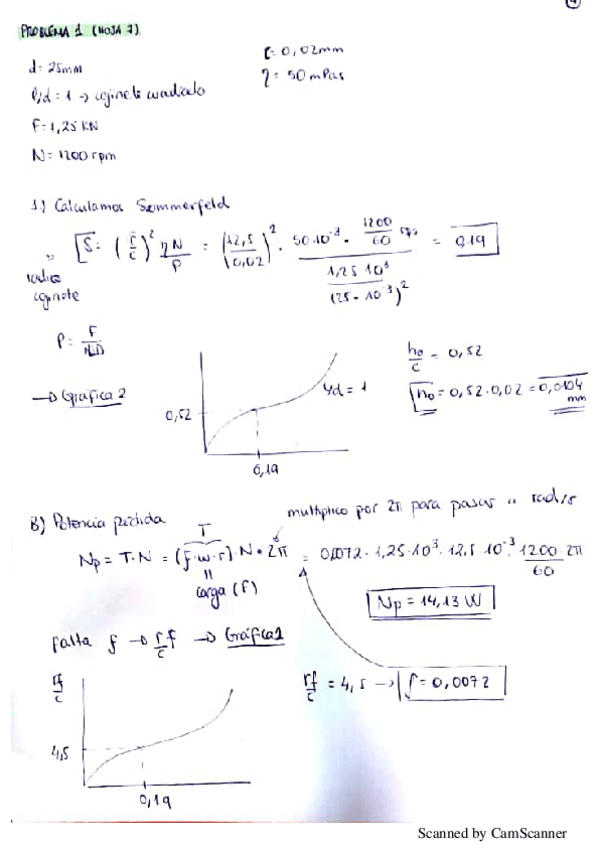 PROBLEMA 1 (HOJA 7)
d = 25mm
c = 0,02mm
l/d = 1 → cojinete cuadrado
η = 50 mPas
F = 1,25 KN
N = 1200 rpm
1.) Calculamos Sommerfeld
S = (r/c)² ηN/P = (12,5/0,02)² · 50·10⁻³ · 1200/60 rps / 1,25·10³/(25·10⁻³)² = 0,19
radio
cojinete
P = F/
→ Gráfica 2
l/d = 1
0,52
0,19
h₀/c = 0,52
h₀ = 0,52·0,02 = 0,0104 mm
B) Potencia perdida
multiplico por 2π para pasar a rad/s
T
Np = T·N = (f·w·r)·N·2π = 0,0072 · 1,25·10³ · 12,5·10⁻³ · 1200/60 · 2π
carga (F)
Np = 14,13 W
Falta f → r/c f → Gráfica 1
rf/c
rf/c = 4,5 → f = 0,0072
4,5
0,19
Scanned by CamScanner